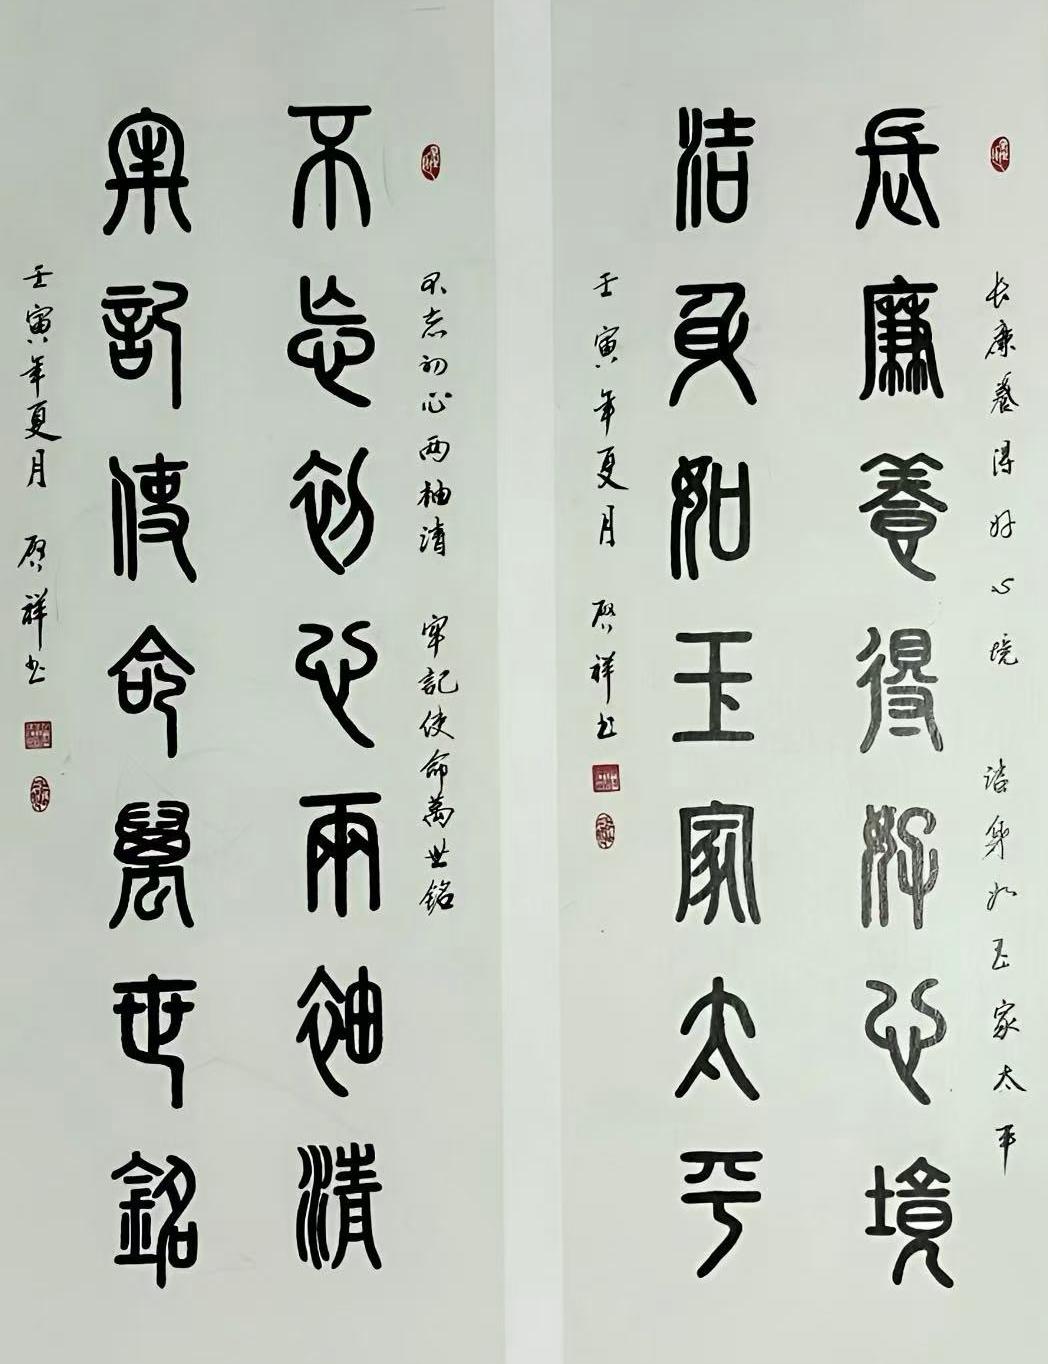 长廉養得好心境 洁身如玉家太平
長廉養得好心境
洁身如玉家太平
壬寅年夏月 啓祥书
不忘初心两袖清 牢記使命萬世銘
不忘初心兩袖清
牢記使命萬世銘
壬寅年夏月 啓祥书